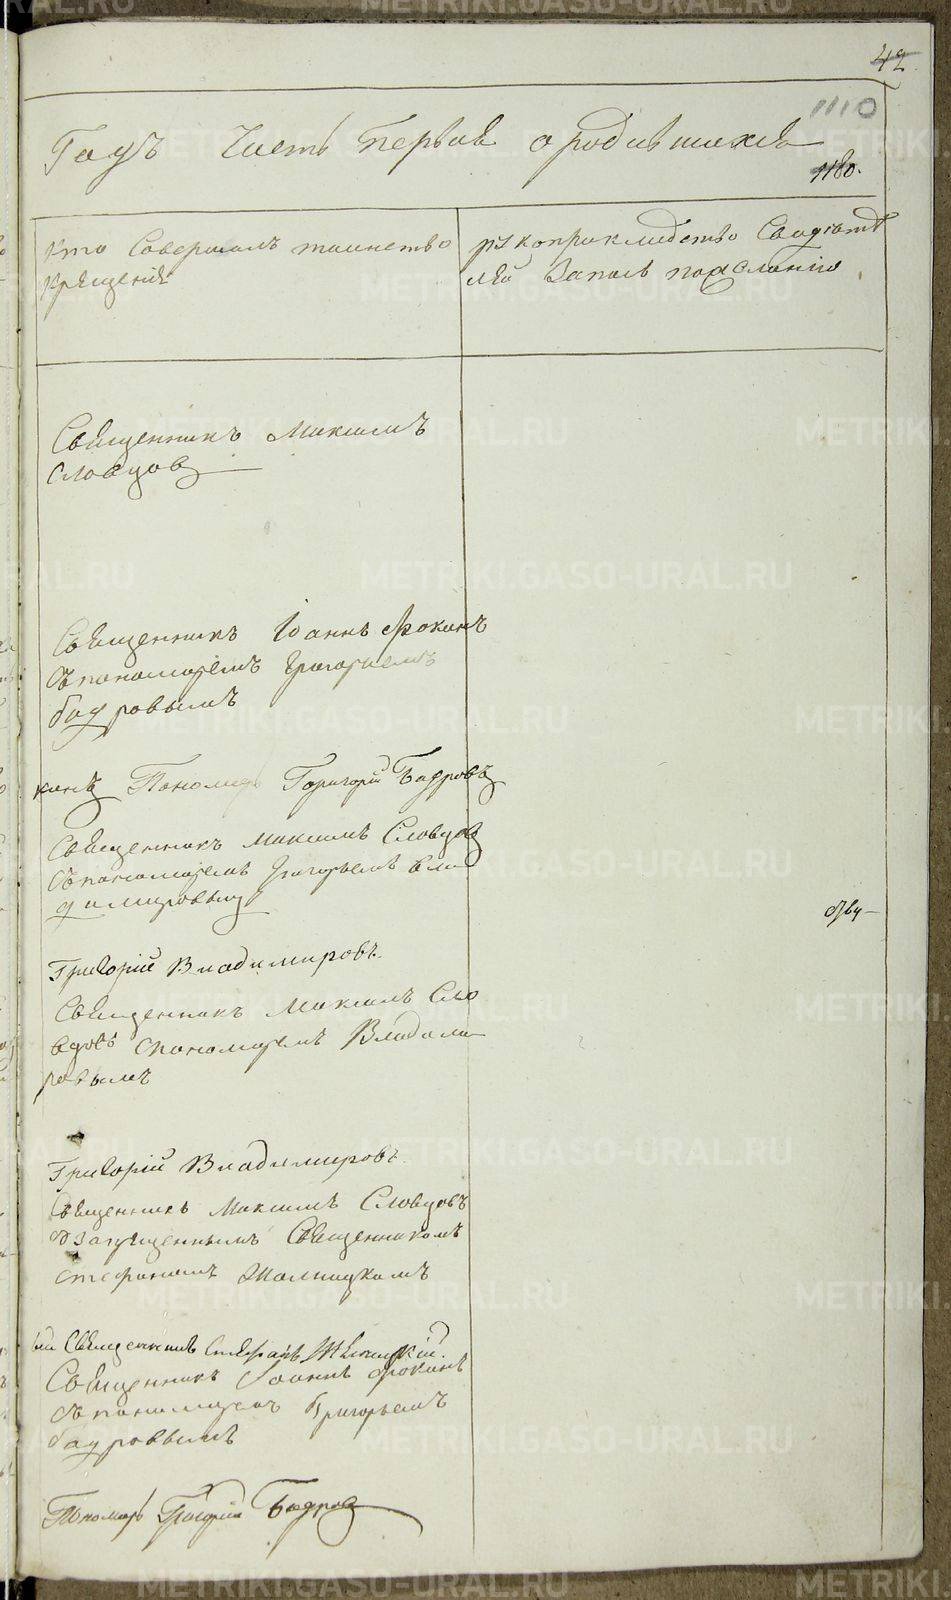 42
1110
Годъ Часть Первая о родившихся
1180.
Кто Совершалъ таинство
крещенiя
рукоприкладство Свидѣте
лей Записи пожеланiю
Священникъ Максимъ
Словцов
Священникъ Iоаннъ Фокинъ
съ пономаремъ Григорьемъ
бадровымъ
кинъ Пономарь Григорiй Бадровъ
Священникъ Максимъ Словцов
съ пономаремъ Григорьемъ Вла
димировым
Григорiй Владимировъ.
Священникъ Максимъ Сло
вцовъ спономаремъ Владими
ровымъ
Григорiй Владимировъ.
Священникъ Максимъ Словцовъ
съ запрещеннымъ Священникомъ
Стефаномъ
Священникъ Стефанъ
Священникъ Iоаннъ Фокинъ
съ пономаремъ Григорьемъ
бадровымъ
Пономарь Григорiй Бадров
METRIKI.GASO-URAL.RU